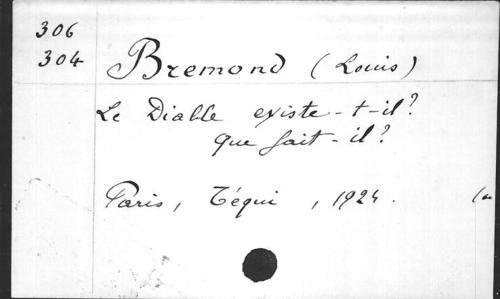 306
304
Bremond (Louis)
Le Diable existe-t-il?
que fait-il?
Paris, Téqui, 1924.